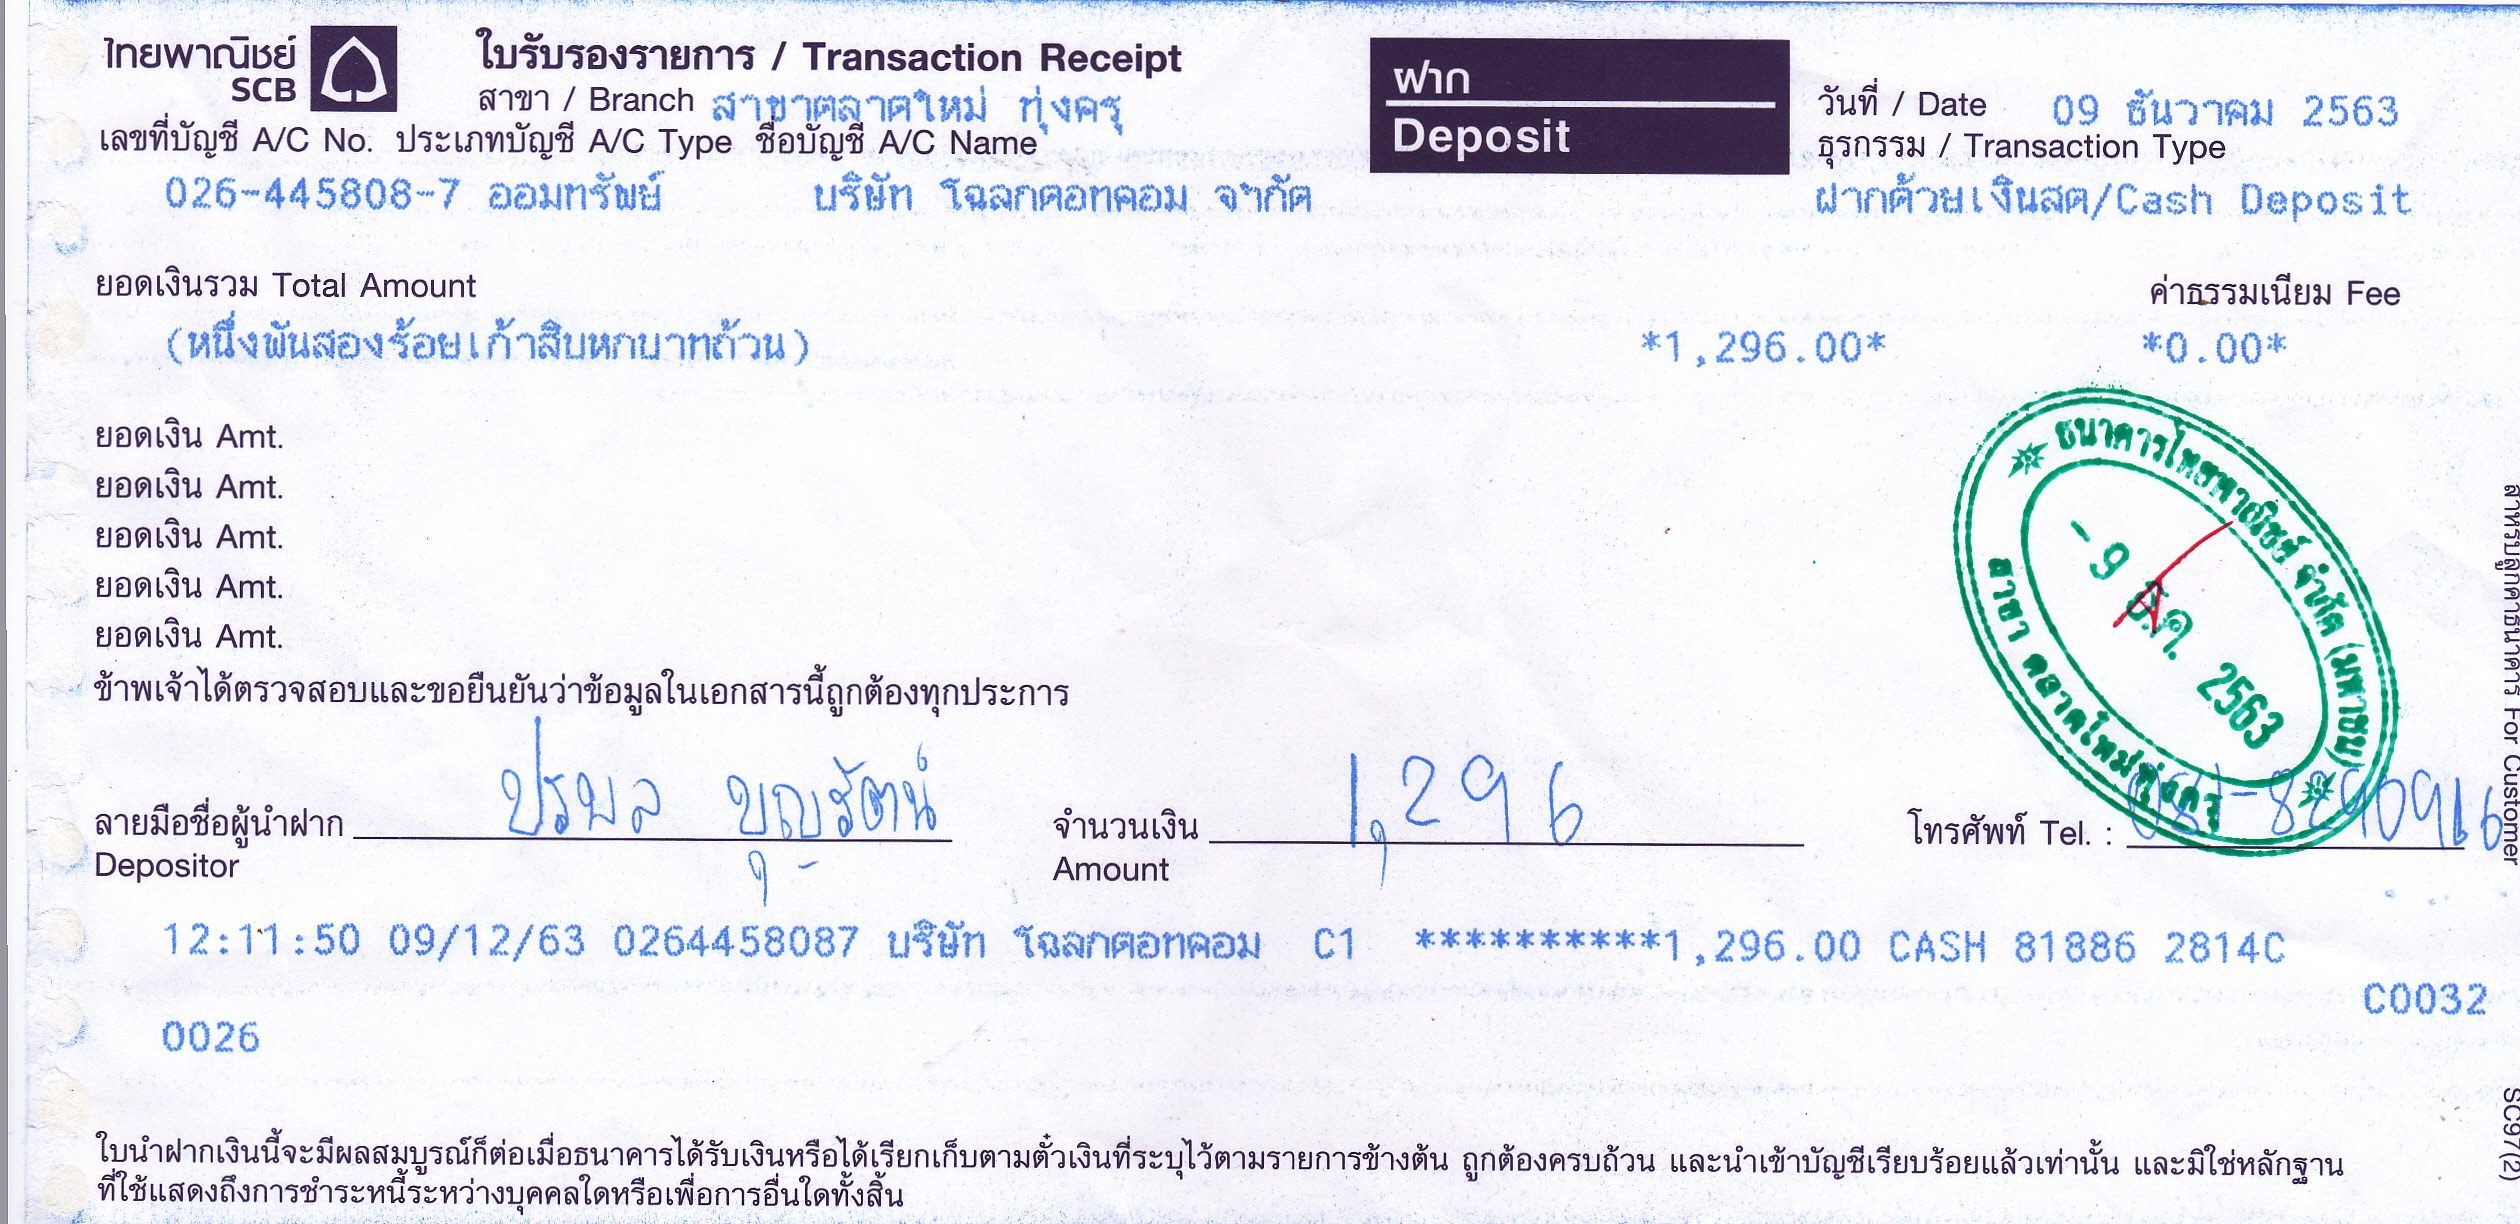 ไทยพาณิชย์
SCB
ใบรับรองรายการ / Transaction Receipt
สาขา / Branch สาขาตลาดใหม่ ทุ่งครุ
ฝาก
Deposit
วันที่ / Date 09 ธันวาคม 2563
ธุรกรรม / Transaction Type
ฝากด้วยเงินสด/Cash Deposit
เลขที่บัญชี A/C No. ประเภทบัญชี A/C Type ชื่อบัญชี A/C Name
026-445808-7 ออมทรัพย์ บริษัท โฉลกดอทคอม จำกัด
ยอดเงินรวม Total Amount ค่าธรรมเนียม Fee
(หนึ่งพันสองร้อยเก้าสิบหกบาทถ้วน) *1,296.00* *0.00*
ยอดเงิน Amt.
ยอดเงิน Amt.
ยอดเงิน Amt.
ยอดเงิน Amt.
ยอดเงิน Amt.
ธนาคารไทยพาณิชย์ จำกัด (มหาชน)
-9 ธ.ค. 2563
สาขา ตลาดใหม่ทุ่งครุ
ข้าพเจ้าได้ตรวจสอบและขอยืนยันว่าข้อมูลในเอกสารนี้ถูกต้องทุกประการ
ลายมือชื่อผู้นำฝาก ปรมล บุญรัตน์ จำนวนเงิน 1,296 โทรศัพท์ Tel. :
Depositor Amount
12:11:50 09/12/63 0264458087 บริษัท โฉลกดอทคอม C1 **********1,296.00 CASH 81886 2814C
C0032
0026
ใบนำฝากเงินนี้จะมีผลสมบูรณ์ก็ต่อเมื่อธนาคารได้รับเงินหรือได้เรียกเก็บตามตั๋วเงินที่ระบุไว้ตามรายการข้างต้น ถูกต้องครบถ้วน และนำเข้าบัญชีเรียบร้อยแล้วเท่านั้น และมิใช่หลักฐาน
ที่ใช้แสดงถึงการชำระหนี้ระหว่างบุคคลใดหรือเพื่อการอื่นใดทั้งสิ้น
สำหรับลูกค้าธนาคาร For Customer
SC97(2)